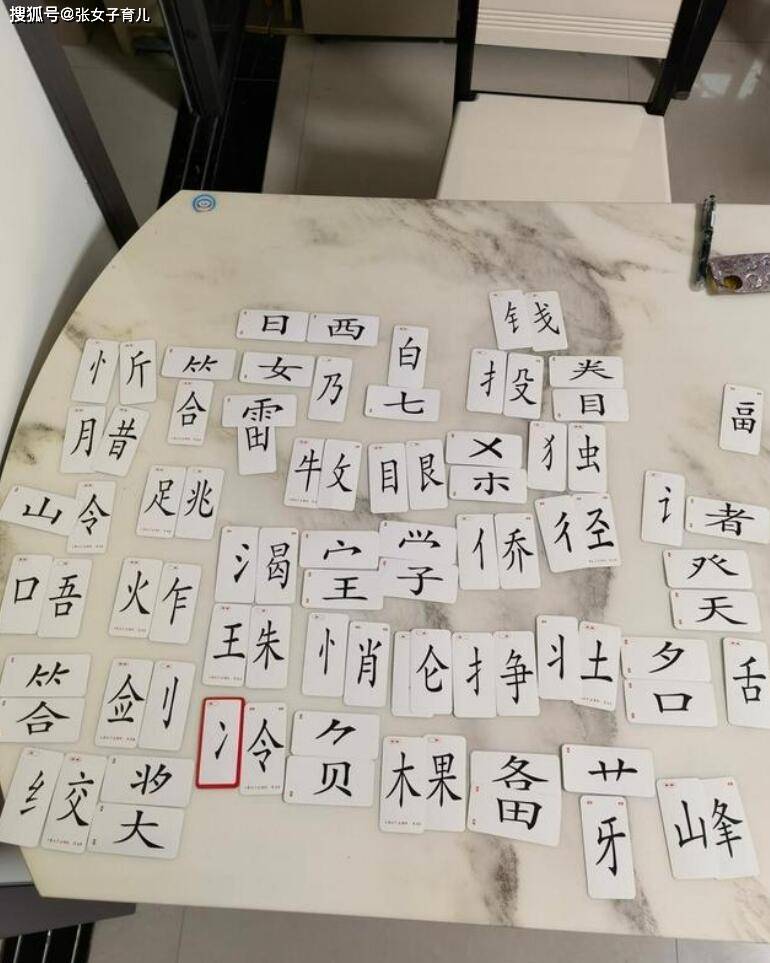 搜狐号@张女子育儿
日 西
钅 戋
忄 斤
⺮ 合
女 乃
白 七
扌 殳
龹 目
畐
月 昔
雷 田
牛 攵
目 艮
犭 虫
山 令
足 兆
讠 者
氵 曷
宀 王
子
亻 乔
彳 圣
癶 天
口 吾
火 乍
王 朱
忄 肖
仑
扌 争
丬 土
夕 口
舌
⺮ 合
佥 刂
冫 令
贝
木 果
田
艹 牙
山 夆
纟 交
大